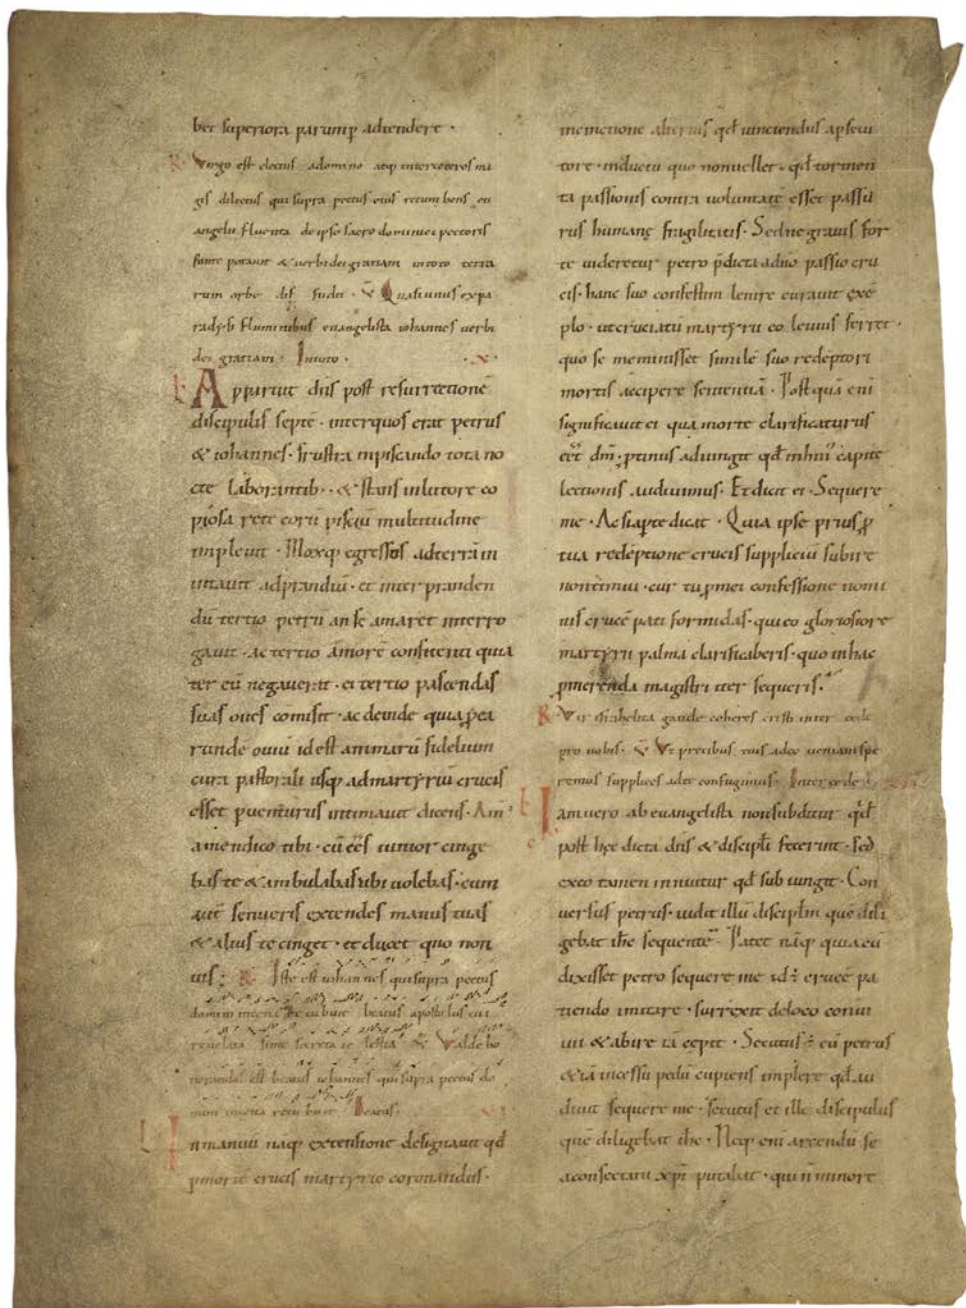 bet superiora parump adtendere ·
R Virgo est electus adomino atq; interceteros ma
gis dilectus qui supra pectus eius recumbens eu
angelii fluenta de ipso sacro dominici pectoris
fonte potauit & uerbi dei gratiam intoto terra
rum orbe dif fudit · V Quasi unus ex pa
radysi fluminibus euangelista iohannes uerbi
dei gratiam · Intoto ·
Apparuit dns post resurrectionē
discipulis septē · inter quos erat petrus
& iohannes · frustra inpiscando tota no
cte laborantib; · & stans inlittore co
piosa rete eorū pisciū multitudine
impleuit · Moxq; egressos adterrā in
uitauit adprandiū · et inter pranden
dū tertio petrū an se amaret interro
gauit · ac tertio amorē confitenti quia
ter eū negauerat · ei tertio pascendas
suas oues cōmisit · ac deinde quia p ea
rundē ouiū id est animarū fidelium
cura pastorali usq; admartyriū crucis
esset puenturus intimauit dicens · Am
amen dico tibi · cū eēs iunior cinge
bas te & ambulabas ubi uolebas · cum
aut̄ senueris extendes manus tuas
& alius te cinget · et ducet quo non
uis ; R Iste est iohannes qui supra pectus
domini incena recubuit beatus apostolus cui
reuelata sunt secreta ce lestia V Valde ho
norandus est beatus iohannes qui supra pectus do
mini incena recubuit Beatus ·
In manuū naq; extensione designauit qđ
pmortē crucis martyrio coronandus ·
incinctione alterius qđ uinciendus apsecu
tore · inductu quo non uellet · qđ tormen
ta passionis contra uoluntatē esset passu
rus humanę fragilitatis · Sed ne grauis for
te uideretur petro p̄dicta adn̄o passio cru
cis · hanc suo confestim lenire curauit exē
plo · ut cruciatū martyrii eo leuius ferret ·
quo se meminisset similē suo redēptori
mortis accipere sententiā · Postquā eni
significauit ei qua morte clarificaturus
eēt dm̄ · ptinus adiungit qđ in hui' capite
lectionis audiuimus · Et dicit ei · Sequere
me · Ac si apte dicat · Quia ipse prius p
tua redēptione crucis suppliciū subire
non timui · cur tu p mei confessione nomi
nis crucē pati formidas · qui eo gloriosiore
martyrii palma clarificaberis · quo inhac
pmerenda magistri iter sequeris ·
R Vir israhelita gaude coheres cristi inter cede
pro nobis · V Vt precibus tuis adeo ueniam spe
remus supplices adte confugimus · Intercede ·
Iam uero ab euangelista non subditur qđ
post hęc dicta dns & discipli fecerint · sed
ex eo tamen innuitur qđ sub iungit · Con
uersus petrus · uidit illū disciplm quē dili
gebat ihc sequentē · Patet naq; quia cū
dixisset petro sequere me id ÷ crucē pa
tiendo imitare · surrexit deloco conui
uii & abire iā cepit · Secutus ÷ eū petrus
& iā incessu pedū cupiens implere qđ au
diuit sequere me · secutus et ille discipulus
quē diligebat ihc · Neq; eni arcendū se
aconsectatu xpi putabat · qui n̄ minore